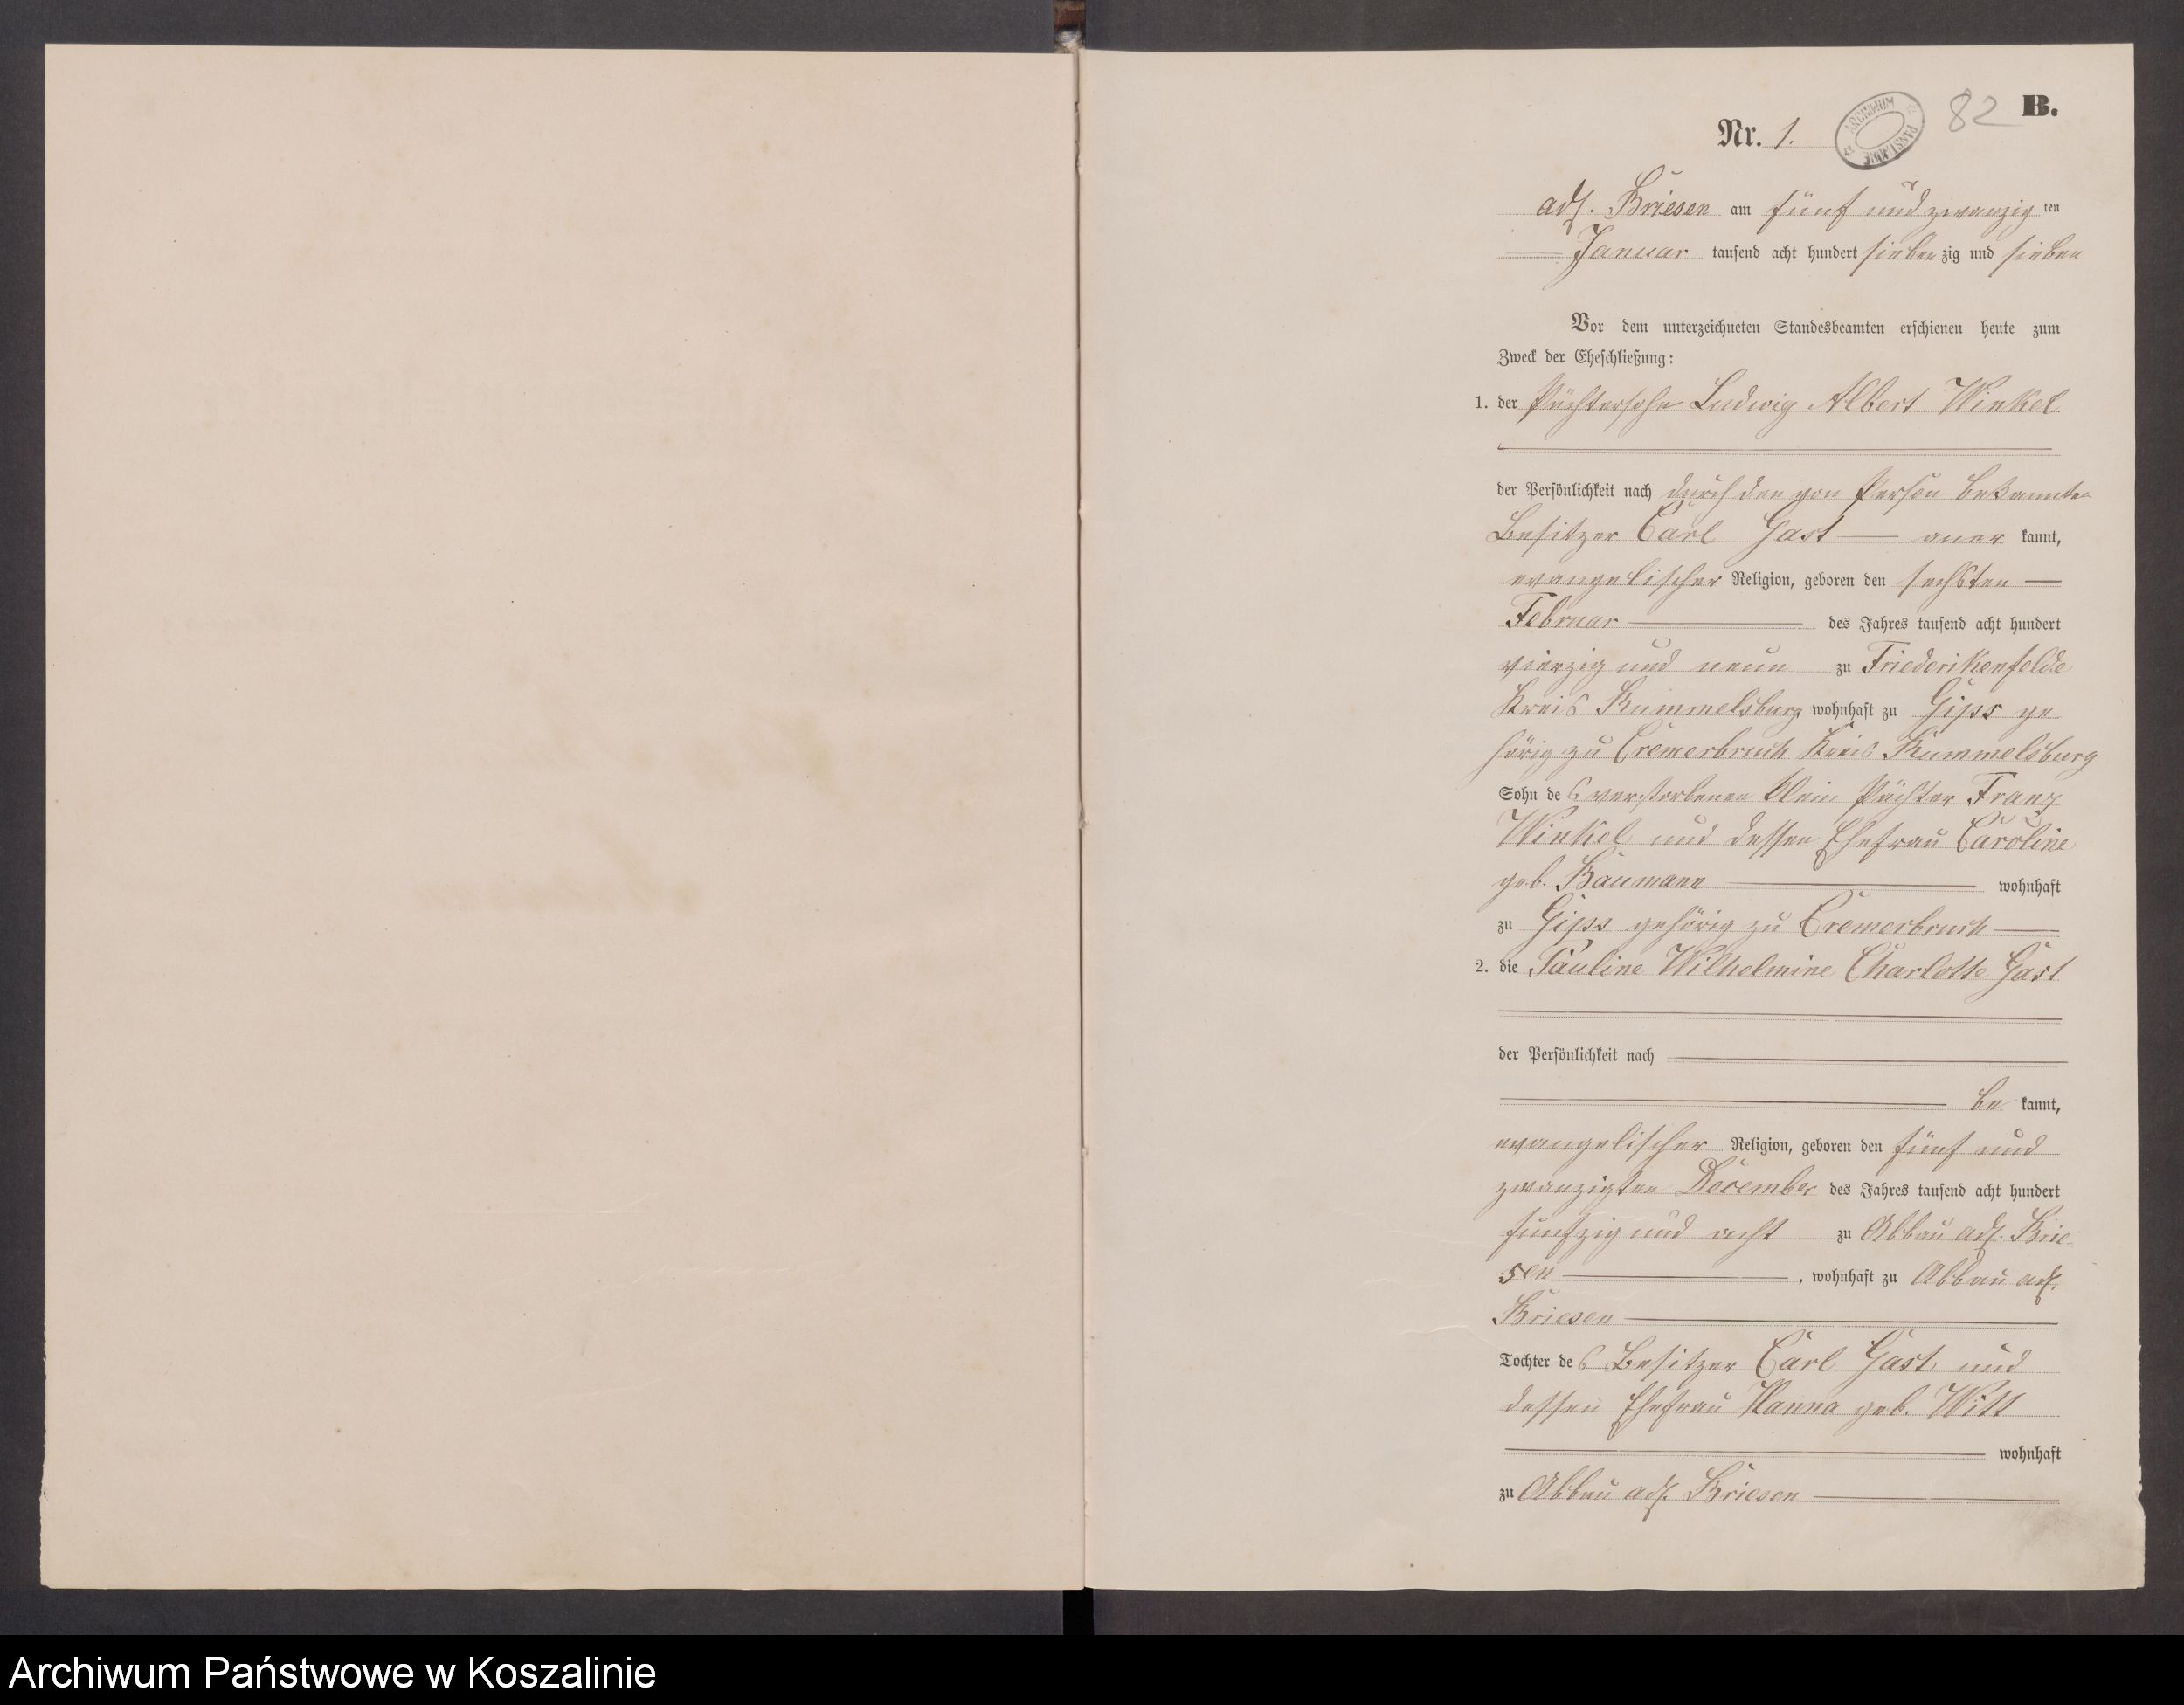 B.
82
Nr. 1.
ARCHIWUM PAŃSTWOWE
adl. Briesen am fünf und zwanzig ten
Januar tausend acht hundert sieben zig und sieben
Vor dem unterzeichneten Standesbeamten erschienen heute zum
Zweck der Eheschließung:
1. der Pächtersohn Ludwig Albert Winkel
der Persönlichkeit nach durch den von Person bekannten
Besitzer Carl Gast — aner kannt,
evangelischer Religion, geboren den sechsten —
Februar — des Jahres tausend acht hundert
vierzig und neun zu Friederikenfelde
Kreis Rummelsburg wohnhaft zu Gips ge
hörig zu Cremerbruch Kreis Rummelsburg
Sohn des verstorbenen Pächter Franz
Winkel und dessen Ehefrau Caroline
geb. Baumann — wohnhaft
zu Gips gehörig zu Cremerbruch —
2. die Pauline Wilhelmine Charlotte Gast
der Persönlichkeit nach —
— be kannt,
evangelischer Religion, geboren den fünf und
zwanzigten December des Jahres tausend acht hundert
funfzig und acht zu Abbau adl. Brie-
sen — , wohnhaft zu Abbau adl.
Briesen —
Tochter des Besitzer Carl Gast und
dessen Ehefrau Hanna geb. Witt
— wohnhaft
zu Abbau adl. Briesen —
Archiwum Państwowe w Koszalinie